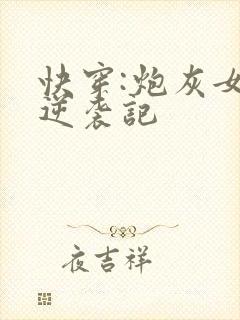 快穿:炮灰女
逆袭記
夜吉祥